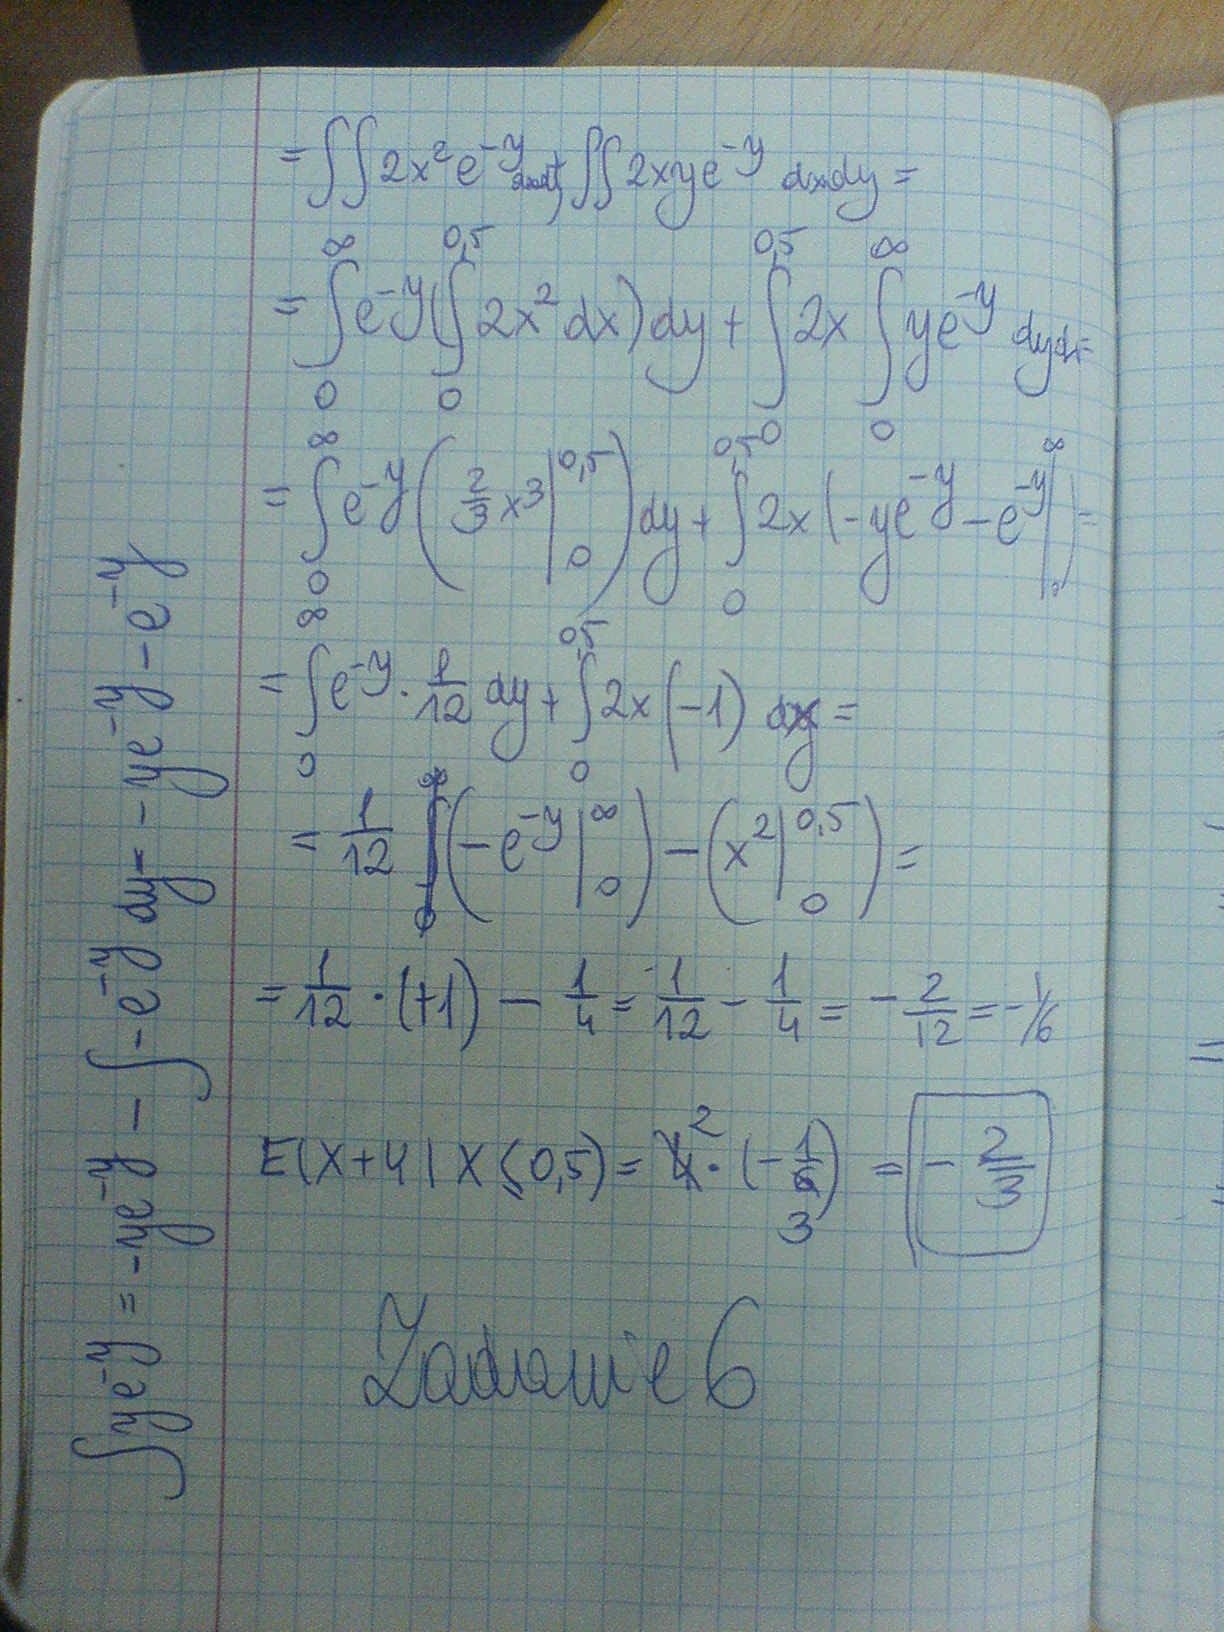 = ∫∫ 2x² e^{-y} dxdy + ∫∫ 2xye^{-y} dxdy =
= ∫_0^∞ e^{-y} (∫_0^{0,5} 2x² dx) dy + ∫_0^{0,5} 2x ∫_0^∞ ye^{-y} dydx =
= ∫_0^∞ e^{-y} (2/3 x³ |_0^{0,5}) dy + ∫_0^{0,5} 2x (-ye^{-y} - e^{-y} |_0^∞) =
= ∫_0^∞ e^{-y} · 1/12 dy + ∫_0^{0,5} 2x (-1) dx =
= 1/12 (-e^{-y} |_0^∞) - (x² |_0^{0,5}) =
= 1/12 · (+1) - 1/4 = 1/12 - 1/4 = - 2/12 = - 1/6
E(X+Y | X ≤ 0,5) = 4 2 · (- 1/6 3) = - 2/3
Zadanie 6
∫ ye^{-y} = -ye^{-y} - ∫ -e^{-y} dy = -ye^{-y} - e^{-y}